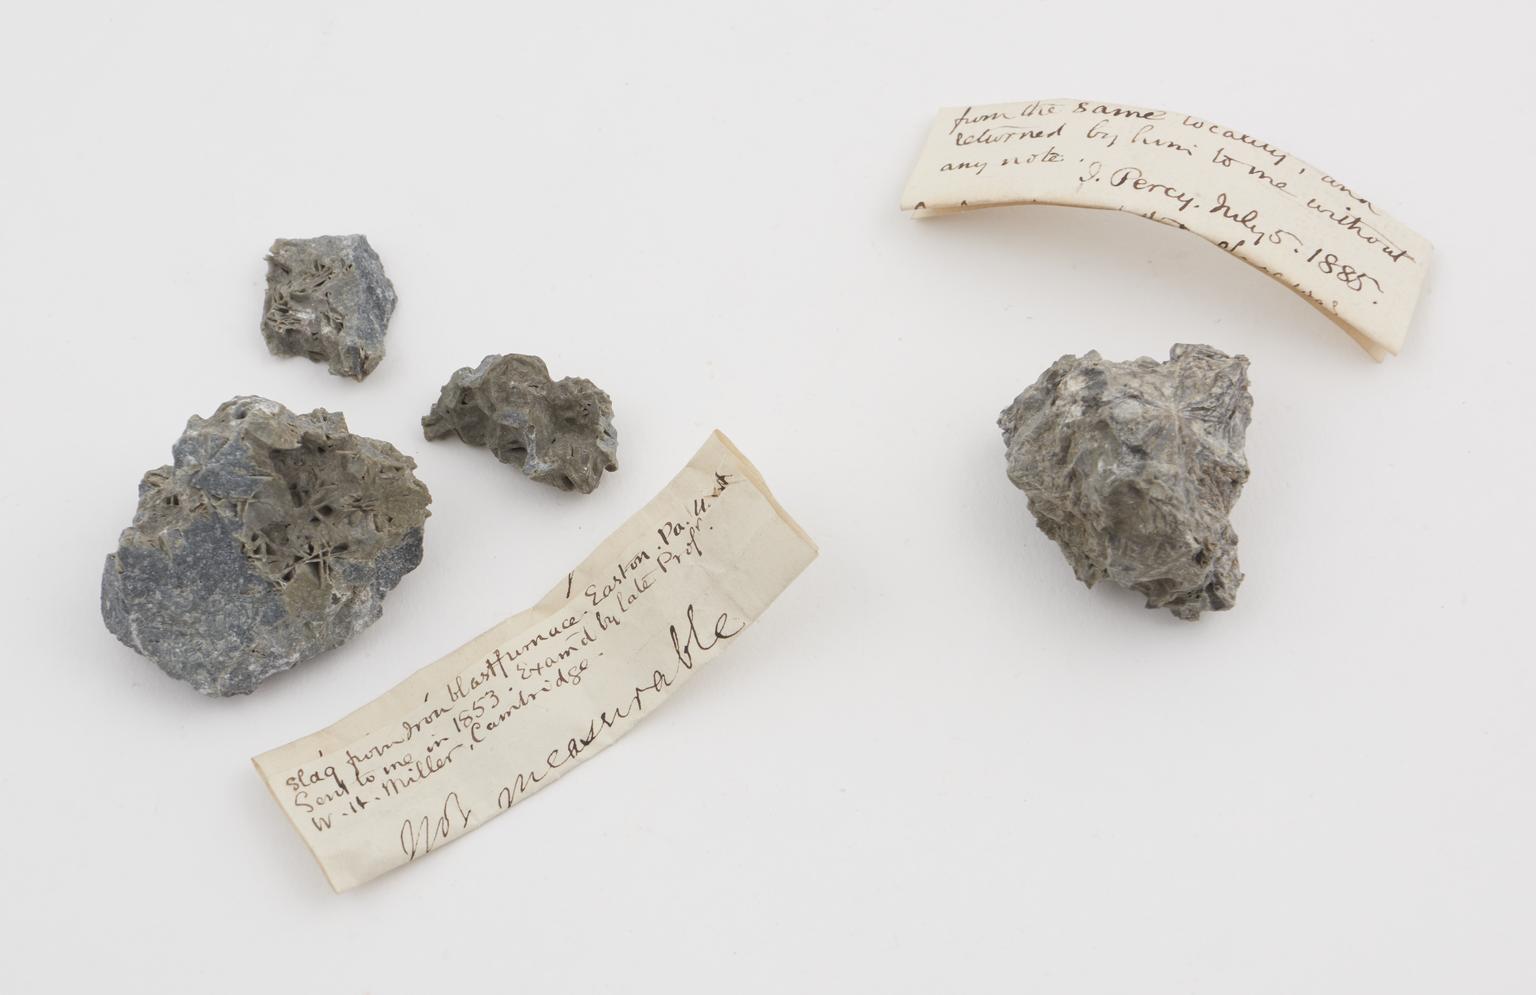 slag from Iron blastfurnace. Easton. Pa. U. St
Sent to me in 1853. Examd by late Profr.
W. H. Miller, Cambridge.
Not measurable
from the same locality, and
returned by him to me without
any note.
J. Percy. July 5. 1885.